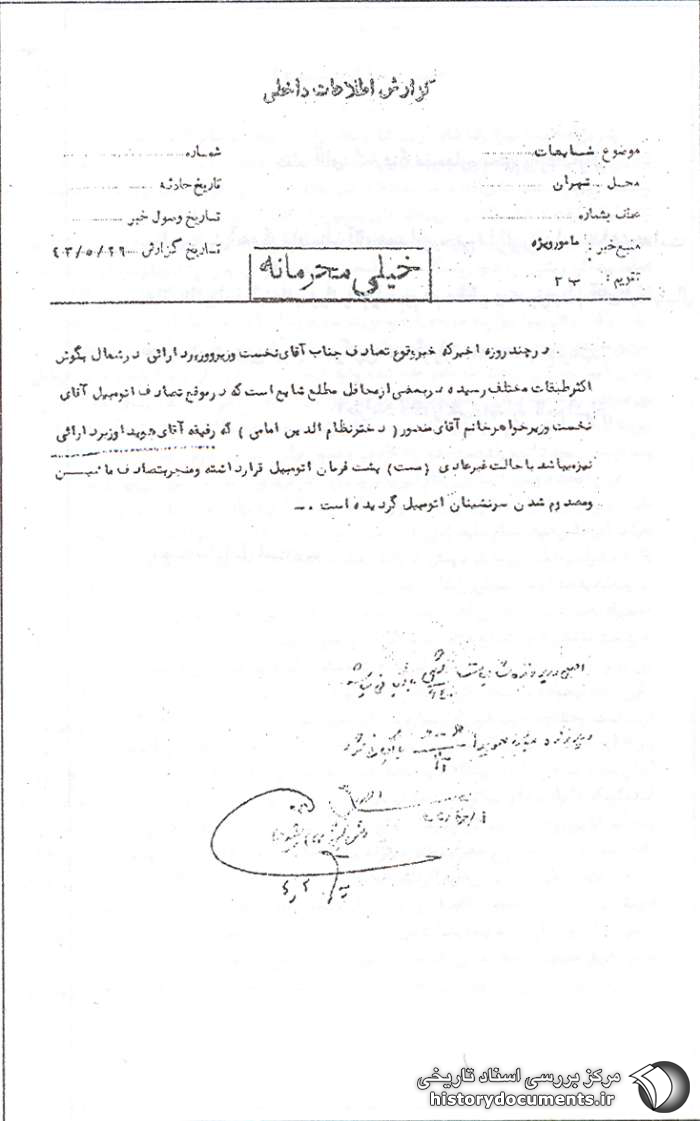 گزارش اطلاعات داخلی
موضوع شایعات
شماره
محل تهران
تاریخ حادثه
عطف بشماره
تاریخ وصول خبر
منبع خبر : مامور ویژه
تاریخ گزارش ۴۳/۵/۲۹
تقویم : ب ۳
خیلی محرمانه
در چند روزه اخیر که خبر وقوع تصادف جناب آقای نخست وزیر و وزیر دارائی در شمال بگوش
اکثر طبقات مختلف رسیده در بعضی از محافل مطلع شایع است که در موقع تصادف اتومبیل آقای
نخست وزیر خواهر خانم آقای منصور ( دختر نظام الدین امامی ) که رفیقه آقای هویدا وزیر دارائی
نیز میباشد با حالت غیر عادی (مست) پشت فرمان اتومبیل قرار داشته و منجر بتصادف ماشین
و مصدوم شدن سرنشینان اتومبیل گردیده است . ــ
مرکز بررسی اسناد تاریخی
historydocuments.ir